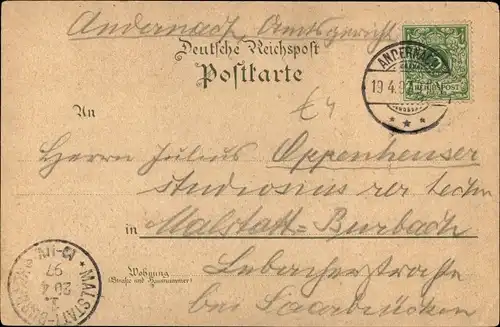 Andernach, Amtsgericht
Deutsche Reichspost
Postkarte
ANDERNACH
19 4 97
REICHSPOST
An
Herrn Julius Oppenheuser
studiosus rer techn
in Malstatt-Burbach
Wohnung
(Straße und Hausnummer)
Lebacherstraße
bei Saarbrücken
MALSTATT-BURBACH
20 4
97